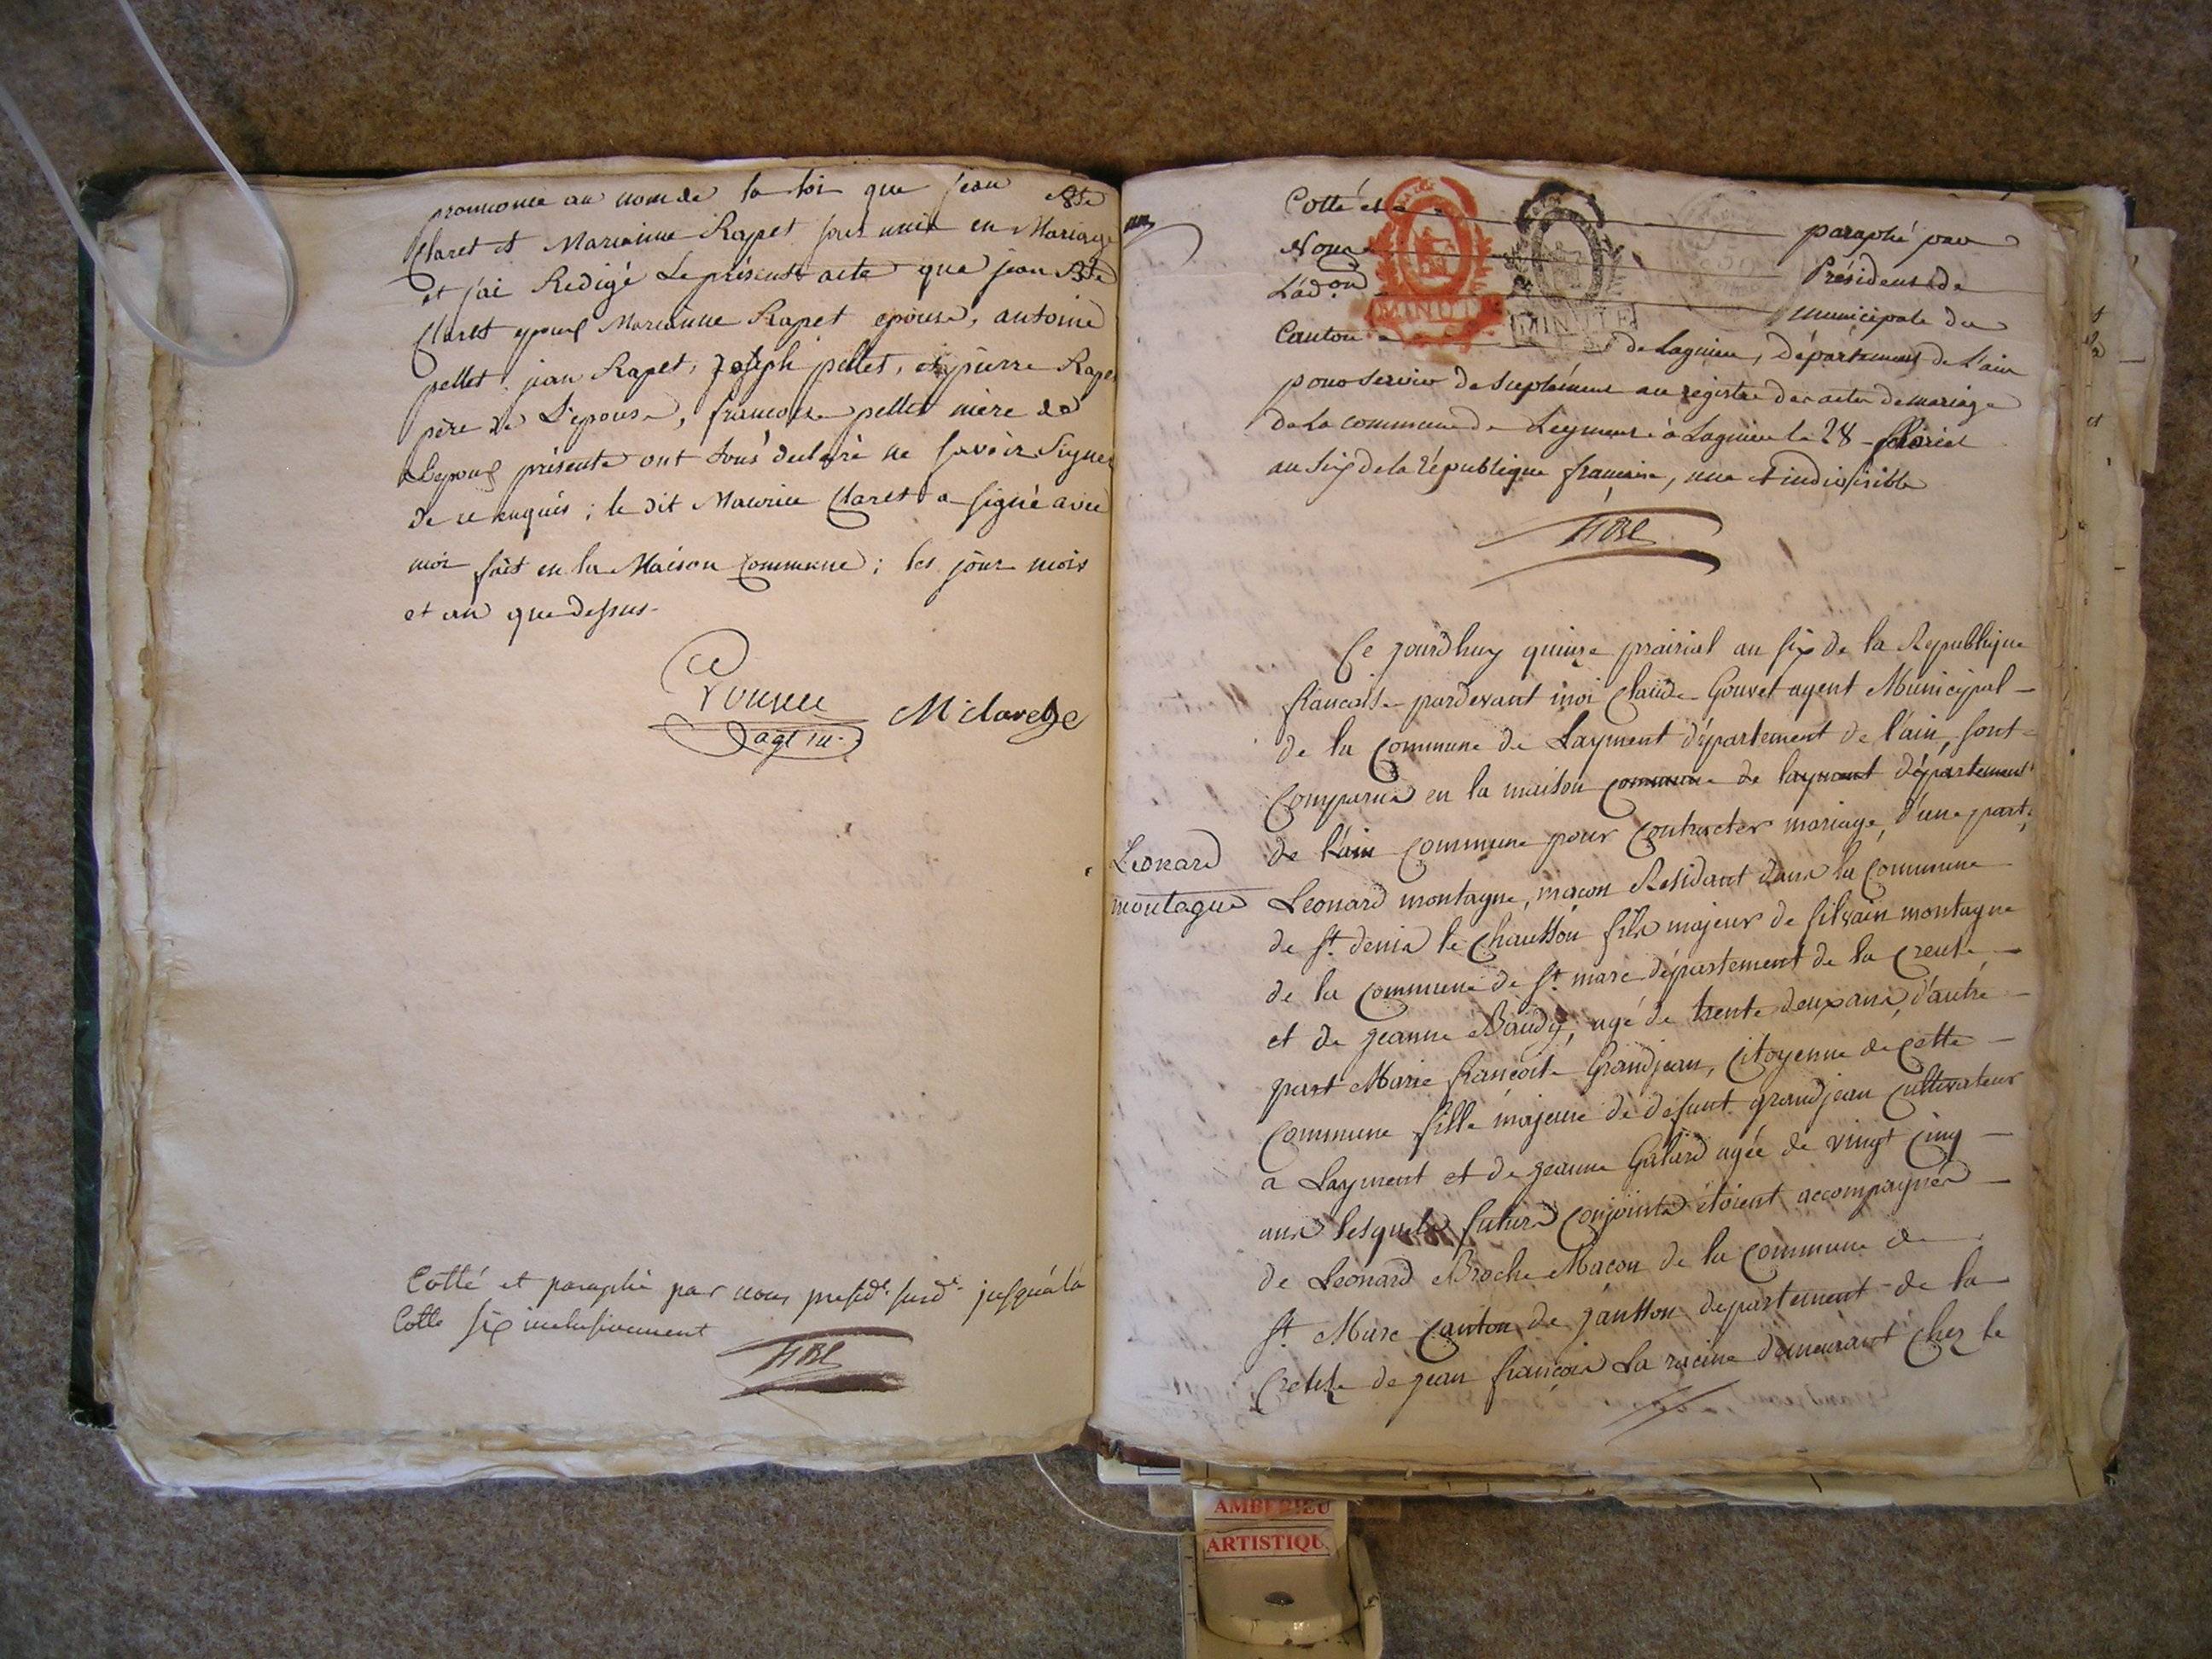 prononcé au nom de la loi que jean Bte
Claret et Marianne Rapet sont unis en Mariage
et j'ai Redigé Le présent acte que jean Bte
Claret epoux Marianne Rapet epouse, antoine
pellet, jean Rapet, Joseph pellet, et pierre Rapet
père de L'epouse, francoise pellet mère de
Lepoux présente ont tous declaré ne savoir Signer
de ce enquis ; le dit Maurice Claret a signé avec
moi fait en la Maison Commune ; les jour mois
et an que dessus.
agt m.
M Claret
Cotté et paraphé par nous presidt. susdt. jusqu'à la
Cotte six inclusivement
Cotté et paraphé par
Nous Président de
L'ad.on municipale du
Canton de Lagnieu, Département de L'ain
pour servir de suplément au registre des actes de mariage
de La commune de Leyment à Lagnieu le 28 floréal
an Six de la République française, une et indivisible
MINUTE
MINUTE
Ce jourdhuy quinze prairial an six de la Republique
francaise pardevant moi Claude Gouvet agent Municipal
de la Commune de Layment département de l'ain, sont
Comparus en la maison commune de layment département
de l'ain commune pour Contracter mariage, d'une part,
Leonard
montagne
Leonard montagne, maçon Residant dans la Commune
de St. denis le Chausson fils majeur de silvain montagne
de la Commune de St. marc département de la Creuse
et de jeanne Baudy, agé de trente deux ans, d'autre
part Marie francoise Grandjean, Citoyenne de Cette
Commune fille majeure de defunt grandjean Cultivateur
a Layment et de jeanne agée de vingt Cinq
ans lesquels futurs Conjoints étoient accompagnés
de Leonard Broche Macon de la Commune de
St. Marc Canton de departement de la
Creuse de jean françois La racine demeurant Chez le
AMBERIEU
ARTISTIQU